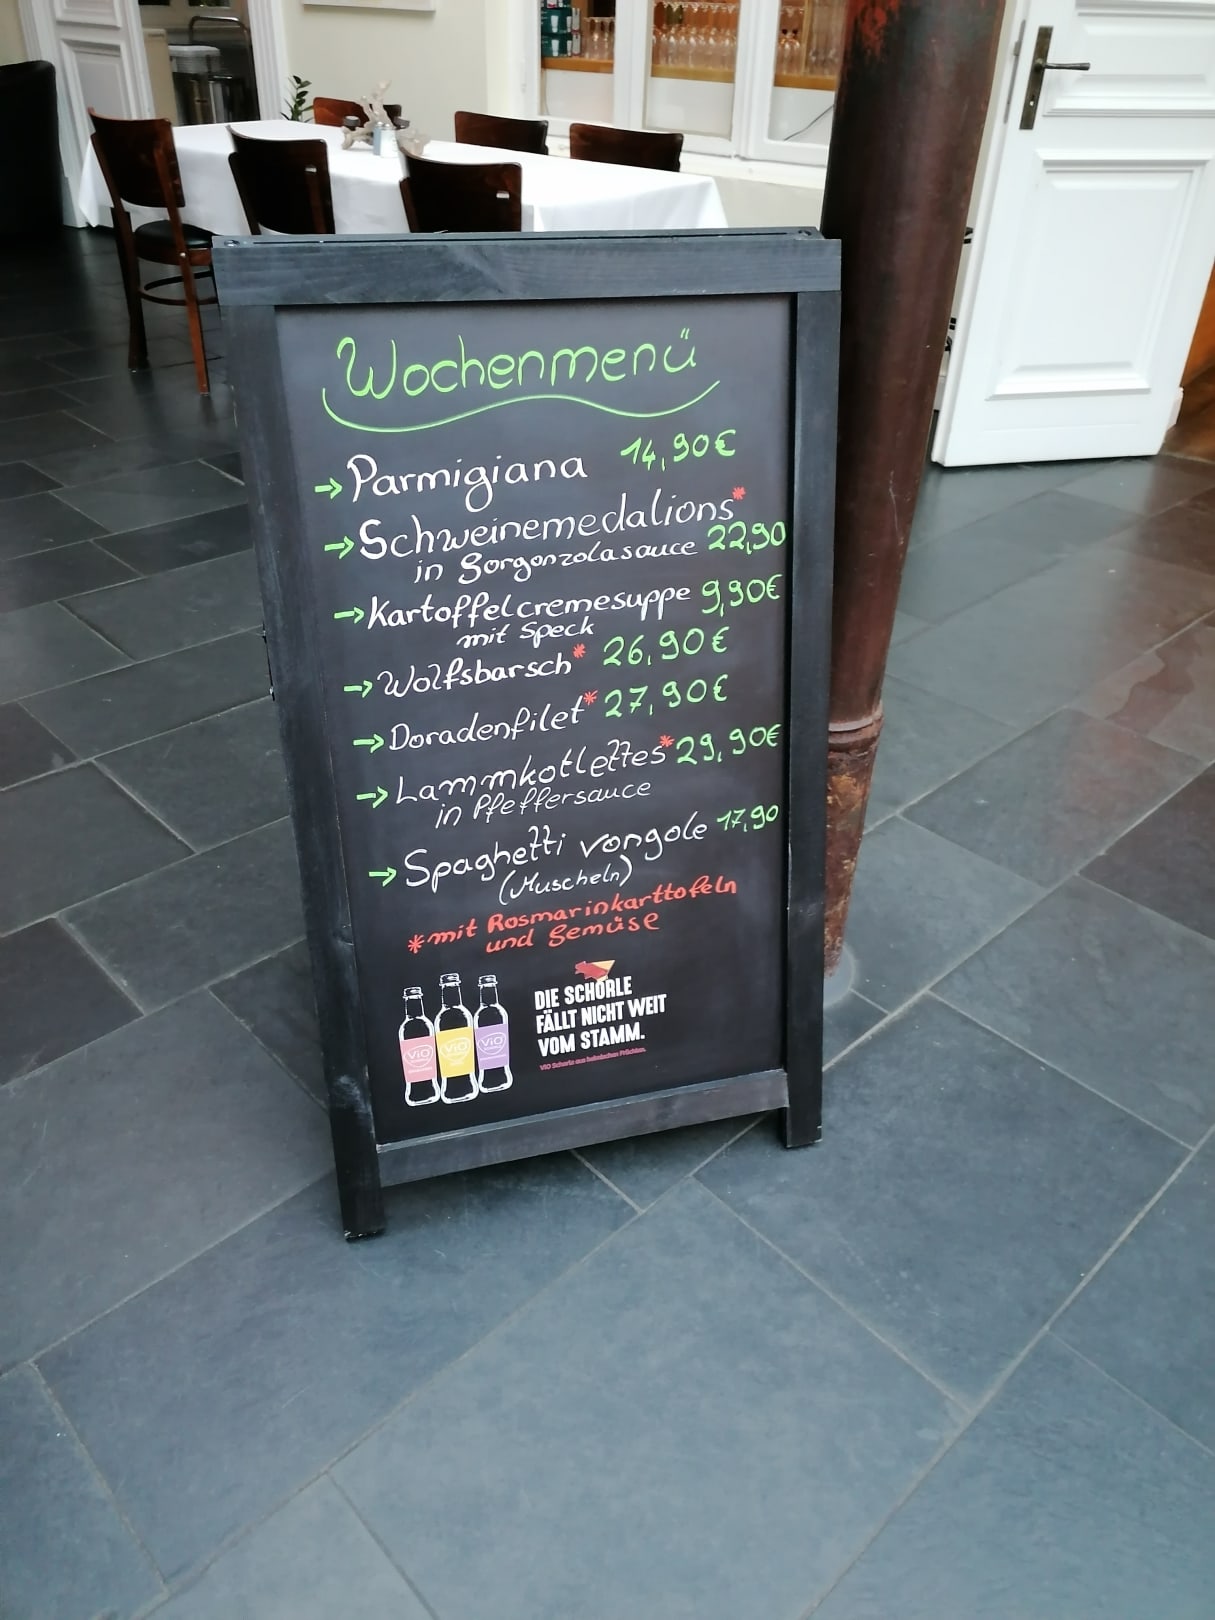 Wochenmenü
→ Parmigiana 14,90€
→ Schweinemedalions*
in Gorgonzolasauce 22,90
→ Kartoffelcremesuppe 9,90€
mit Speck
→ Wolfsbarsch* 26,90€
→ Doradenfilet* 27,90€
→ Lammkotlettes* 29,90€
in Pfeffersauce
→ Spaghetti vongole 17,90
(Muscheln)
*mit Rosmarinkarttofeln
und Gemüse
DIE SCHORLE
FÄLLT NICHT WEIT
VOM STAMM.
ViO Schorle aus heimischen Früchten.
ViO
ViO
ViO